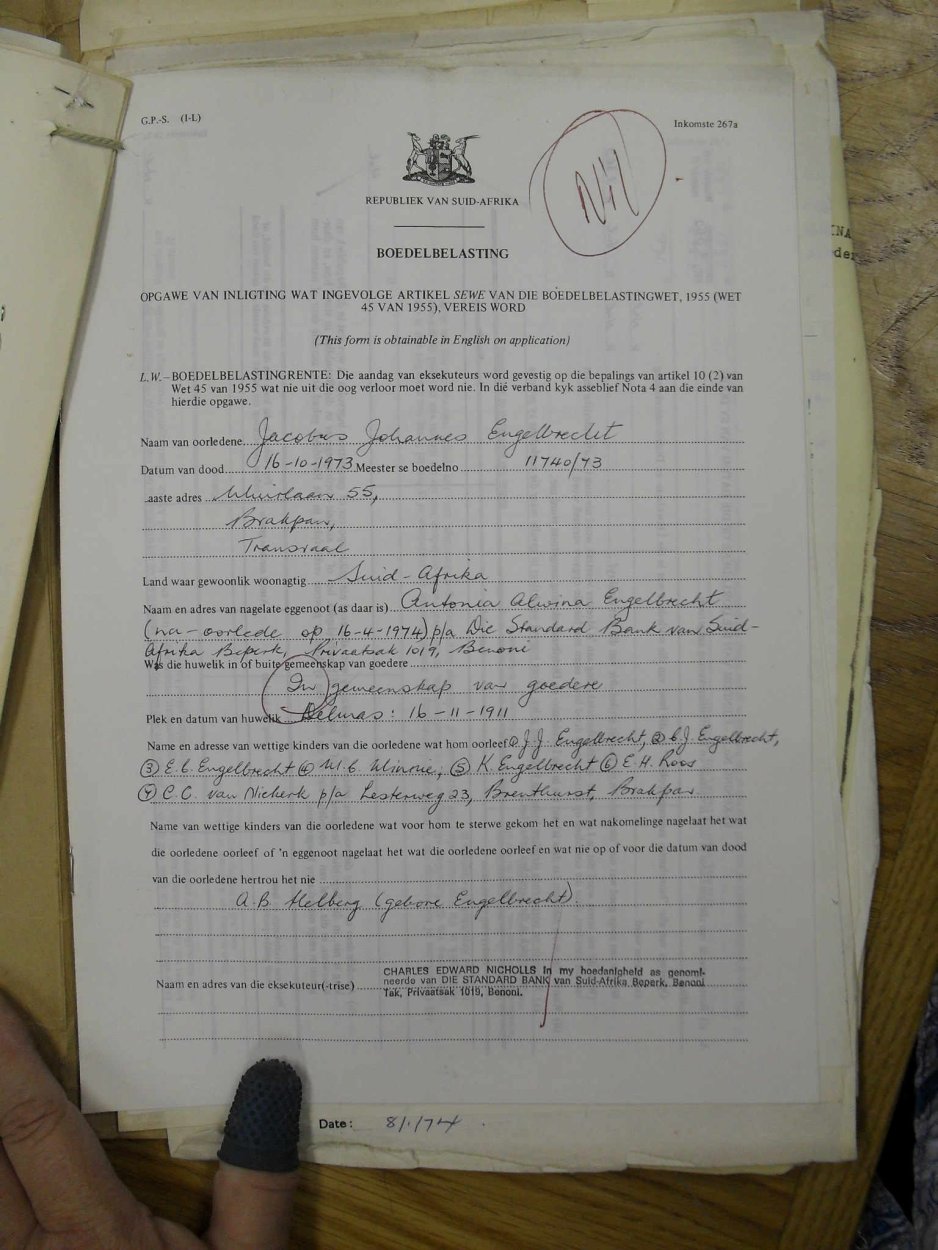 G.P.-S. (I-L)
Inkomste 267a
Nil
REPUBLIEK VAN SUID-AFRIKA
BOEDELBELASTING
OPGAWE VAN INLIGTING WAT INGEVOLGE ARTIKEL SEWE VAN DIE BOEDELBELASTINGWET, 1955 (WET
45 VAN 1955), VEREIS WORD
(This form is obtainable in English on application)
L.W.–BOEDELBELASTINGRENTE: Die aandag van eksekuteurs word gevestig op die bepalings van artikel 10 (2) van
Wet 45 van 1955 wat nie uit die oog verloor moet word nie. In dié verband kyk asseblief Nota 4 aan die einde van
hierdie opgawe.
Naam van oorledene Jacobus Johannes Engelbrecht
Datum van dood 16-10-1973 Meester se boedelno 11740/73
aaste adres 55,
Brakpan,
Transvaal
Land waar gewoonlik woonagtig Suid-Afrika
Naam en adres van nagelate eggenoot (as daar is) Antonia Alwina Engelbrecht
(na-oorlede op 16-4-1974) p/a Die Standard Bank van Suid-
Afrika Beperk, Privaatsak 1019, Benoni
Was die huwelik in of buite gemeenskap van goedere
In gemeenskap van goedere
Plek en datum van huwelik Delmas: 16-11-1911
Name en adresse van wettige kinders van die oorledene wat hom oorleef ① J.J. Engelbrecht, ② C.J. Engelbrecht,
③ E.C. Engelbrecht ④ M.C. ⑤ K. Engelbrecht ⑥ E.H. Roos
⑦ C.C. van Niekerk p/a Lesterweg 23, Brenthurst, Brakpan
Name van wettige kinders van die oorledene wat voor hom te sterwe gekom het en wat nakomelinge nagelaat het wat
die oorledene oorleef of 'n eggenoot nagelaat het wat die oorledene oorleef en wat nie op of voor die datum van dood
van die oorledene hertrou het nie
A.B. Helberg (gebore Engelbrecht)
Naam en adres van die eksekuteur(-trise)
CHARLES EDWARD NICHOLLS In my hoedanigheid as genomi-
neerde van DIE STANDARD BANK van Suid-Afrika Beperk, Benoni
Tak, Privaatsak 1019, Benoni.
Date: 8/1/74